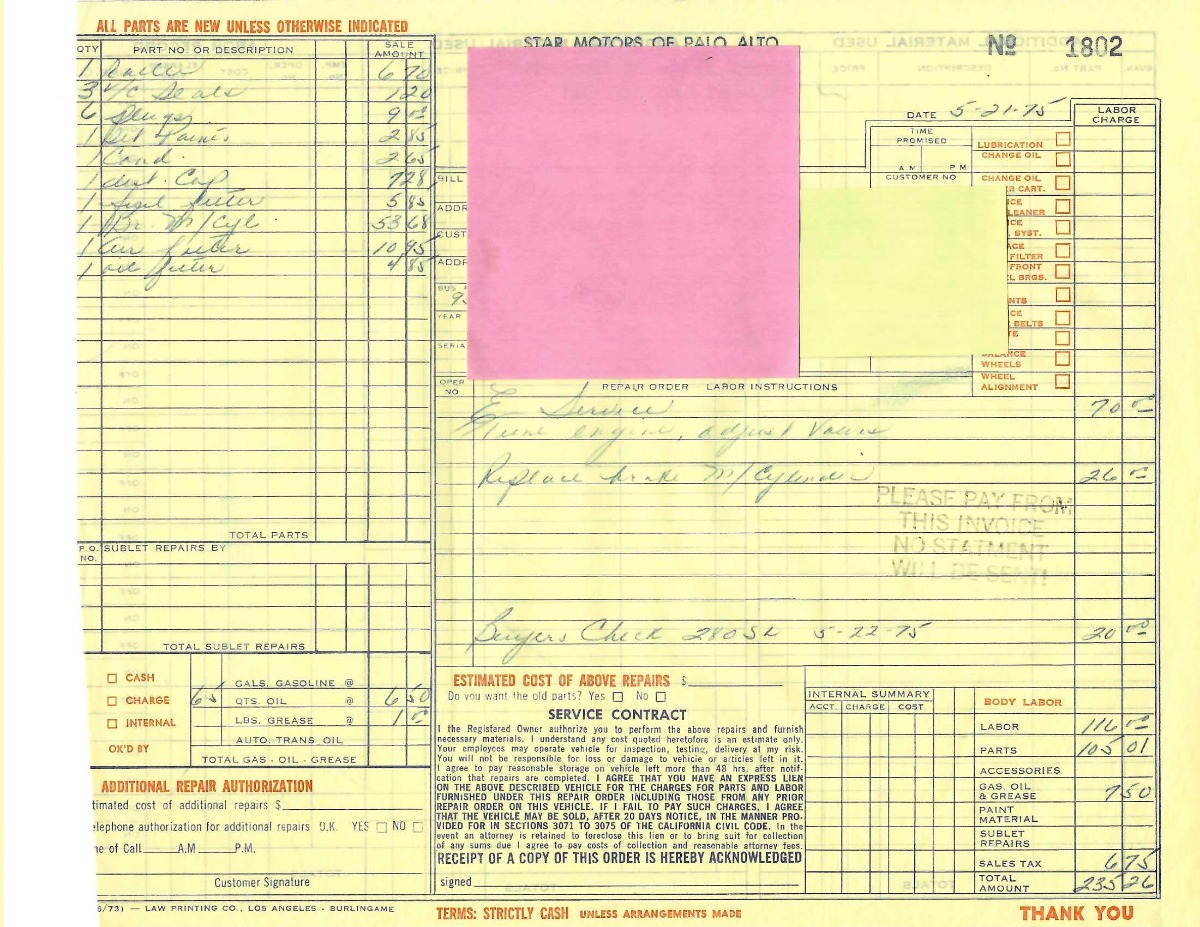 ALL PARTS ARE NEW UNLESS OTHERWISE INDICATED
QTY PART NO. OR DESCRIPTION SALE AMOUNT
1 6 70
3 V/C Seals 1 20
6 Plugs 9 00
1 2 85
1 Cond. 2 65
1 dist. Cap 7 28
1 fuel filter 5 85
1 Br. M/Cyl 53 68
1 air filter 10 95
1 oil filter 4 85
TOTAL PARTS
P.O. NO. SUBLET REPAIRS BY
TOTAL SUBLET REPAIRS
CASH
CHARGE
INTERNAL
OK'D BY
GALS. GASOLINE @
QTS. OIL @ 6 50
LBS. GREASE @ 1 00
AUTO. TRANS OIL
TOTAL GAS - OIL - GREASE
ADDITIONAL REPAIR AUTHORIZATION
timated cost of additional repairs $
elephone authorization for additional repairs O.K. YES NO
ne of Call A.M P.M.
Customer Signature
6/73) — LAW PRINTING CO., LOS ANGELES - BURLINGAME
STAR MOTORS OF PALO ALTO
Nº 1802
DATE 5-21-75
LABOR CHARGE
TIME PROMISED
A M P M
CUSTOMER NO
LUBRICATION
CHANGE OIL
CHANGE OIL
R CART.
ICE
LEANER
ICE
. SYST.
ACE
FILTER
FRONT
L BRGS.
NTS
CE
BELTS
TE
BALANCE WHEELS
WHEEL ALIGNMENT
BILL
ADDR
CUST
ADDR
BUS.
9
YEAR
SERIA
OPER NO
REPAIR ORDER LABOR INSTRUCTIONS
E Service 70 00
Tune engine, adjust Valves
Replace brake M/Cylinder 26 00
PLEASE PAY FROM
THIS INVOICE
NO STATMENT
WILL BE SENT!
Buyers Check 280SL 5-22-75 20 00
ESTIMATED COST OF ABOVE REPAIRS $
Do you want the old parts? Yes No
SERVICE CONTRACT
I the Registered Owner authorize you to perform the above repairs and furnish
necessary materials. I understand any cost quoted heretofore is an estimate only.
Your employees may operate vehicle for inspection, testing, delivery at my risk.
You will not be responsible for loss or damage to vehicle or articles left in it.
I agree to pay reasonable storage on vehicle left more than 48 hrs. after notif-
ication that repairs are completed. I AGREE THAT YOU HAVE AN EXPRESS LIEN
ON THE ABOVE DESCRIBED VEHICLE FOR THE CHARGES FOR PARTS AND LABOR
FURNISHED UNDER THIS REPAIR ORDER INCLUDING THOSE FROM ANY PRIOR
REPAIR ORDER ON THIS VEHICLE. IF I FAIL TO PAY SUCH CHARGES, I AGREE
THAT THE VEHICLE MAY BE SOLD, AFTER 20 DAYS NOTICE, IN THE MANNER PRO-
VIDED FOR IN SECTIONS 3071 TO 3075 OF THE CALIFORNIA CIVIL CODE. In the
event an attorney is retained to foreclose this lien or to bring suit for collection
of any sums due I agree to pay costs of collection and reasonable attorney fees.
RECEIPT OF A COPY OF THIS ORDER IS HEREBY ACKNOWLEDGED
signed
INTERNAL SUMMARY
ACCT. CHARGE COST
BODY LABOR
LABOR 116 00
PARTS 105 01
ACCESSORIES
GAS, OIL & GREASE 7 50
PAINT MATERIAL
SUBLET REPAIRS
SALES TAX 6 75
TOTAL AMOUNT 235 26
TERMS: STRICTLY CASH UNLESS ARRANGEMENTS MADE
THANK YOU